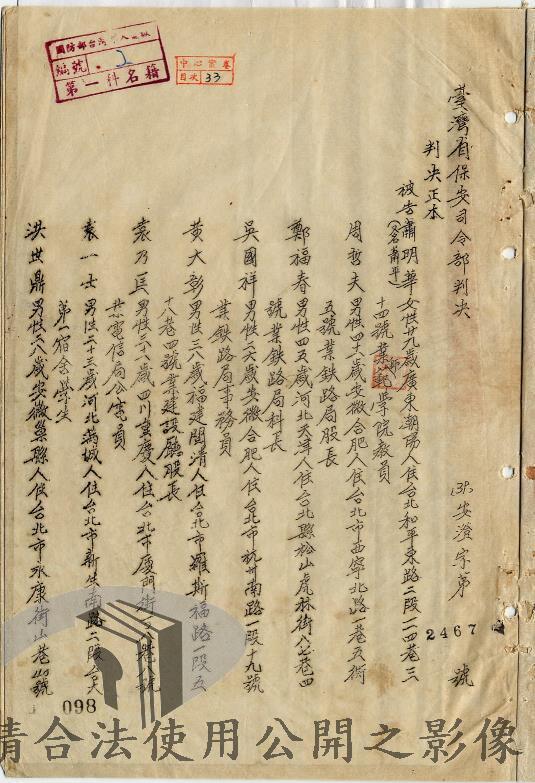 臺灣省保安司令部判決
(39)安澄字第2467號
判決正本
被告蕭明華 女性 廿九歲 廣東潮陽人 住台北和平東路二段一四巷三
(又名蕭平)
十四號 業 學院教員
周哲夫 男性 歲 安徽合肥人 住台北市西寧北路一巷五衖
五號 業鉄路局股長
鄭福春 男性 四五歲 河北天津人 住台北縣松山虎林街八七巷四
號 業鉄路局科長
吳國祥 男性 二六歲 安徽合肥人 住台北市杭州南路一段十九號
業鉄路局事務員
黃大彰 男性 三八歲 福建閩清人 住台北市羅斯福路一段五
十八巷四號 業建設廳股長
袁乃匡 男性 歲 四川重慶人 住台北市厦門街 巷八號
業電信局公富員
袁一士 男性 二十三歲 河北滿城人 住台北市新生南路二段
第一宿舍學生
洪世鼎 男性 二八歲 安徽巢縣人 住台北市永康街 巷 號
國防部台灣軍人監獄
編號 2
第一科名籍
中心宗卷
目次 33
098
請合法使用公開之影像